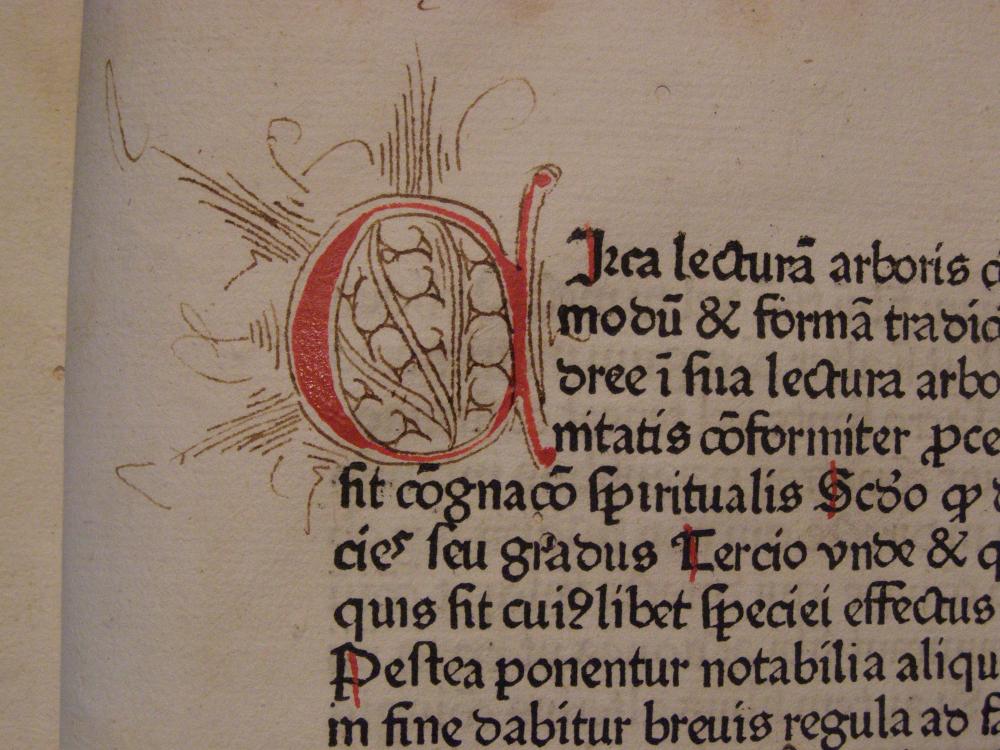 C Irca lecturā arboris
modū & formā tradic
dree ī ſua lectura arbo
nitatis cōformiter ꝓce
ſit cōgnacō ſpiritualis Scd̓o ꝙ
cieꝭ ſeu gradus Tercio vnde & q
quis ſit cuiꝰlibet ſpeciei effectus
Peſtea ponentur notabilia aliqu
in fine dabitur breuis regula ad fa